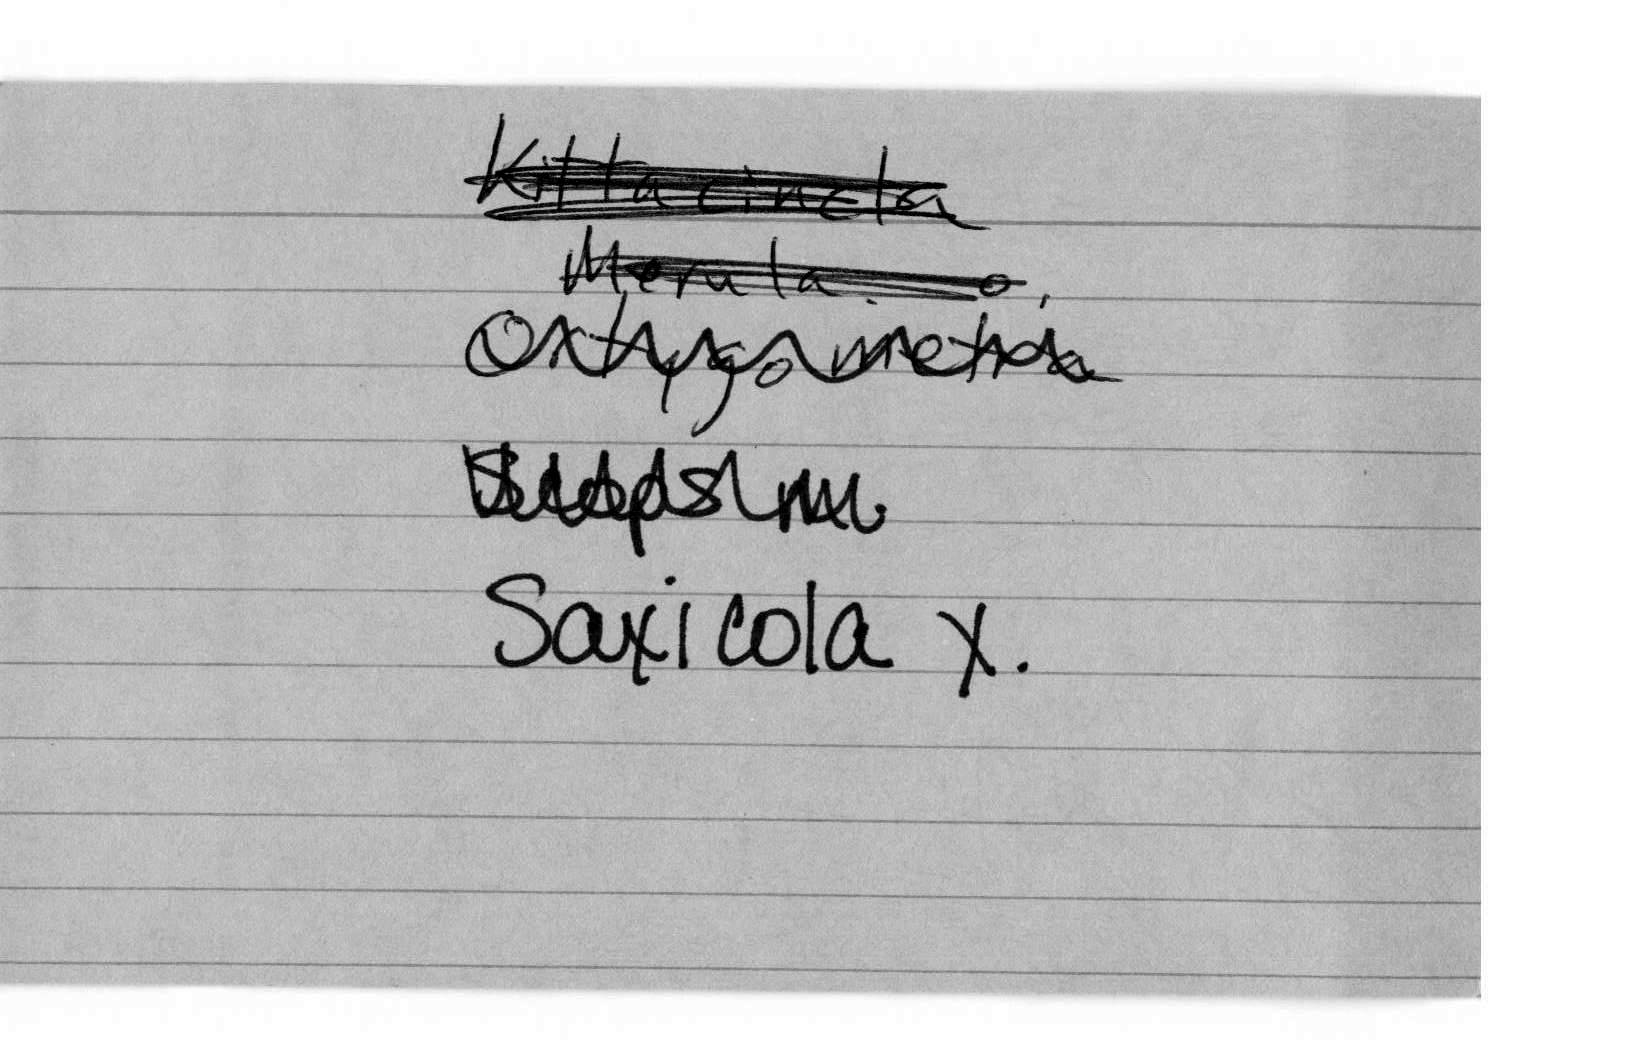 Kittacincla
Merula
Ortygometra
Saxicola x.